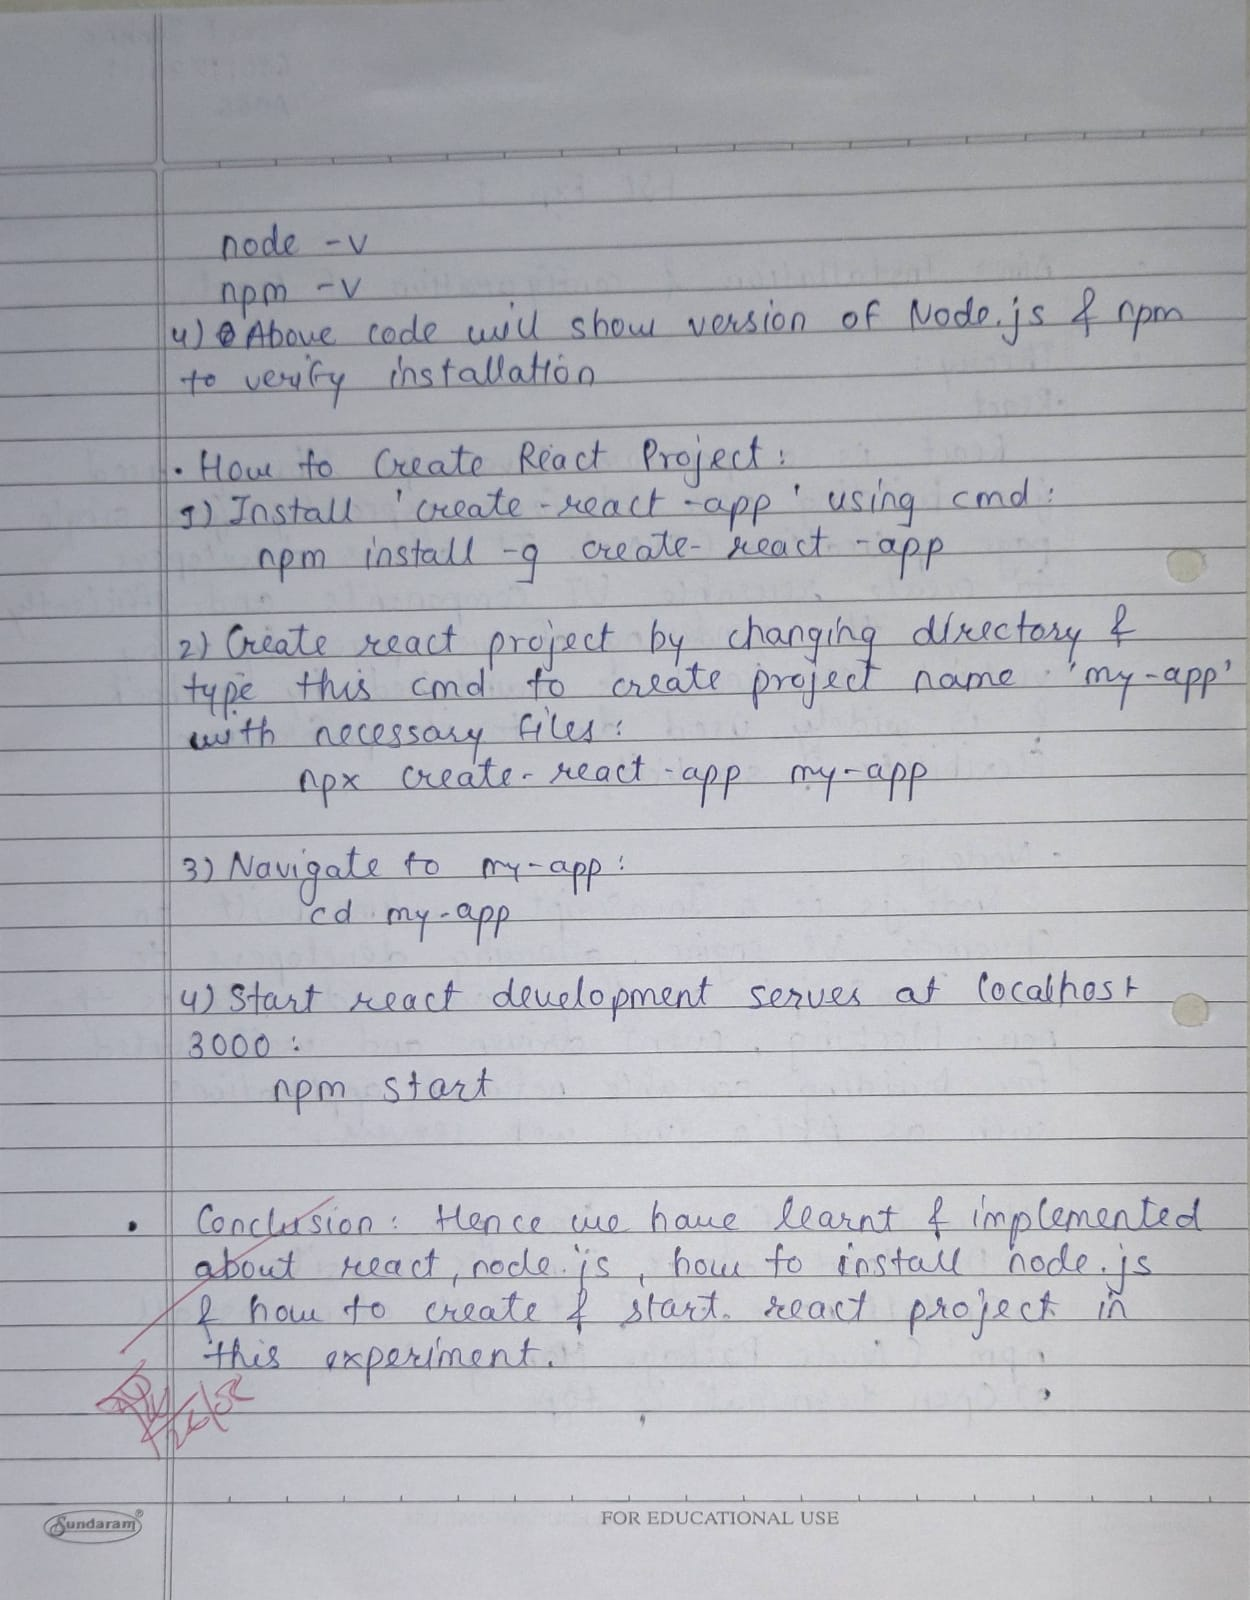 node -v
npm -v
4) Above code will show version of Node.js & npm
to verify installation
. How to Create React Project :
1) Install 'create-react-app' using cmd :
npm install -g create-react-app
2) Create react project by changing directory &
type this cmd to create project name 'my-app'
with necessary files :
npx create-react-app my-app
3) Navigate to my-app :
cd my-app
4) Start react development server at localhost
3000 :
npm start
• Conclusion : Hence we have learnt & implemented
about react, node.js, how to install node.js
& how to create & start react project in
this experiment.
Sundaram®
FOR EDUCATIONAL USE